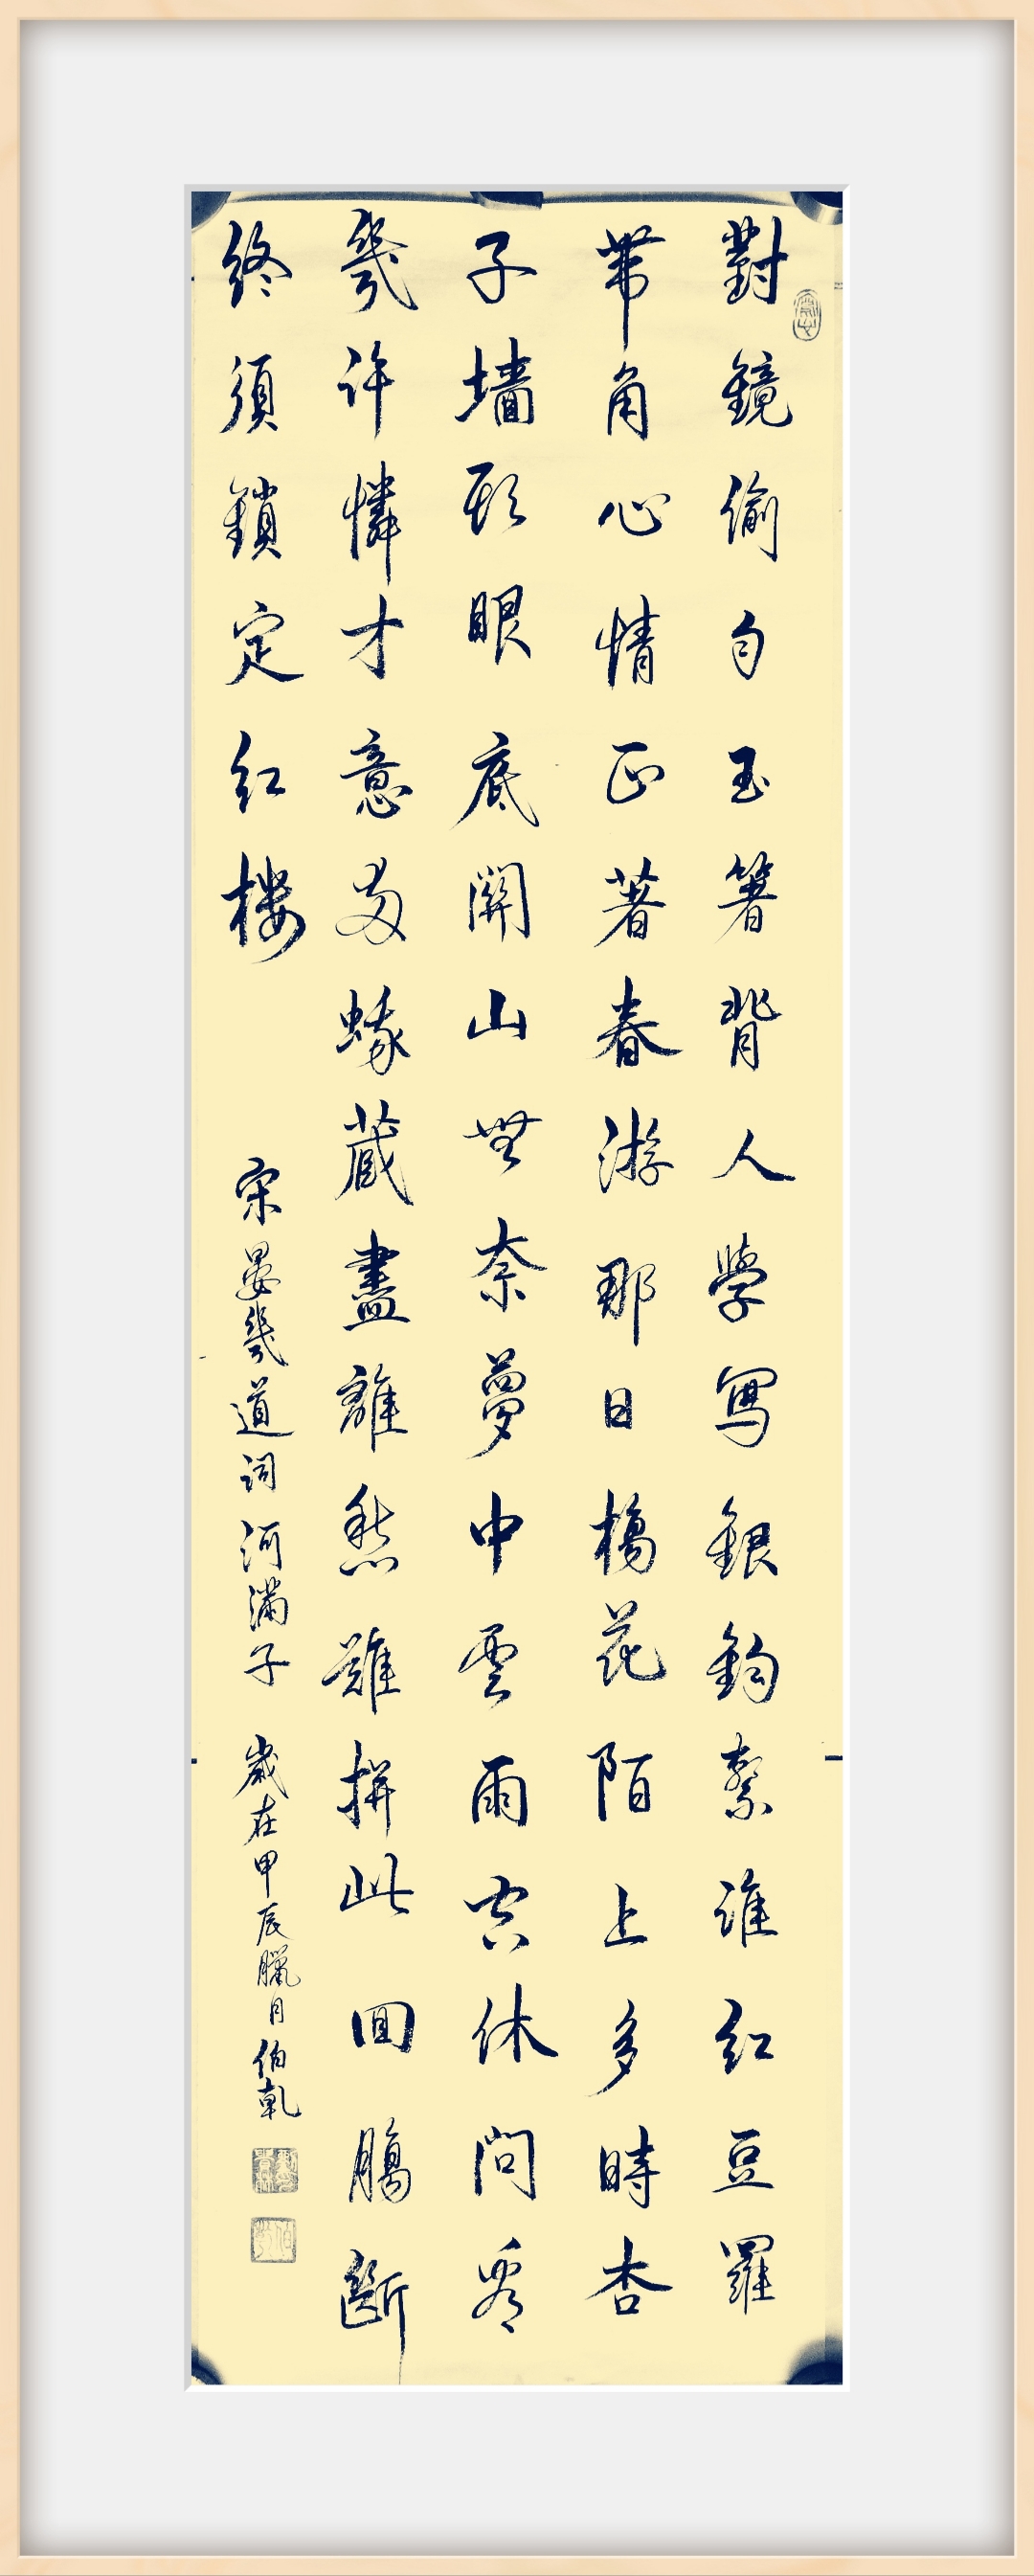 對鏡偷勻玉箸背人學寫銀鈎繫誰紅豆羅
帶角心情正著春游那日楊花陌上多時杏
子墻頭眼底關山無奈夢中雲雨空休問看
幾許憐才意兩蛾藏盡離愁難拼此回腸斷
終須鎖定紅樓
宋晏幾道詞河滿子歲在甲辰臘月伯乾